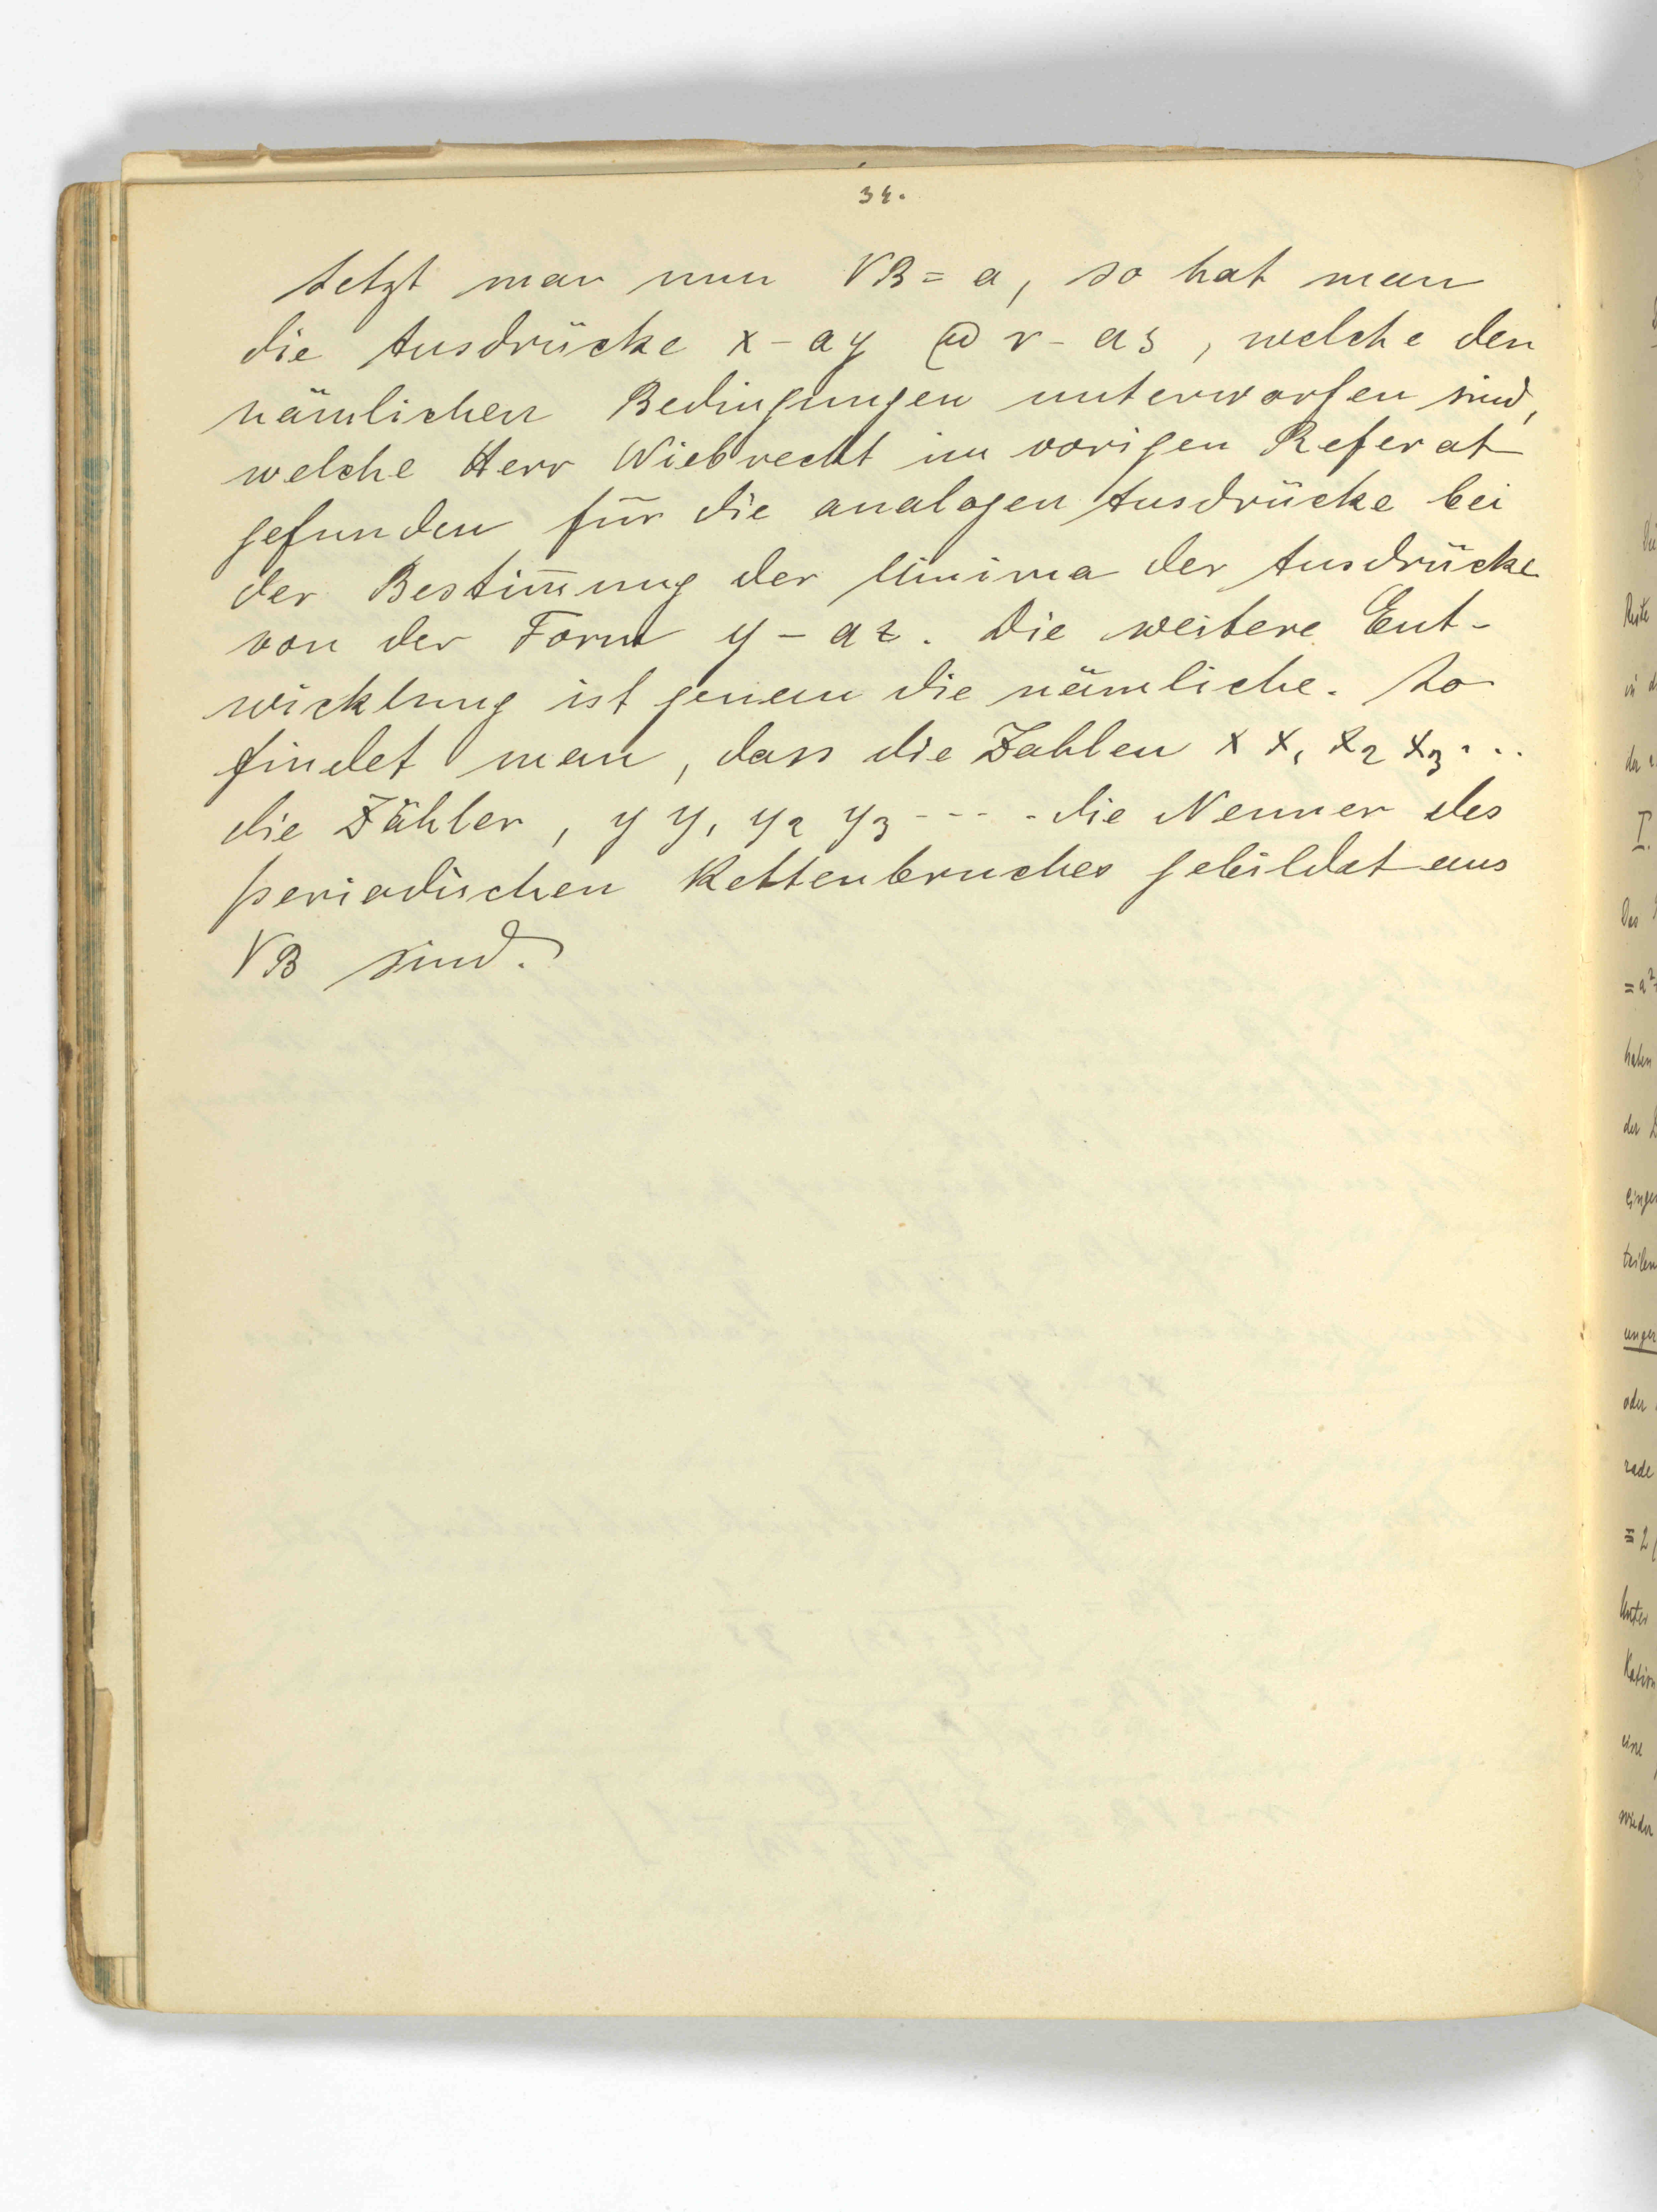 34.
Setzt man nun √B = a, so hat man
die Ausdrücke x - ay @ r - as, welche den
nämlichen Bedingungen unterworfen sind,
welche Herr Wiebrecht im vorigen Referat
gefunden für die analogen Ausdrücke bei
der Bestim̅ung der Minima der Ausdrücke
von der Form y - az. Die weitere Ent-
wicklung ist genau die nämliche. So
findet man, dass die Zahlen x x₁ x₂ x₃ ...
die Zähler, y y₁ y₂ y₃ - - - - die Nenner des
periodischen Kettenbruches gebildet aus
√B sind.
I.
= a²
haben
der
unger
oder
rade
= 2
Unter
eine
wieder